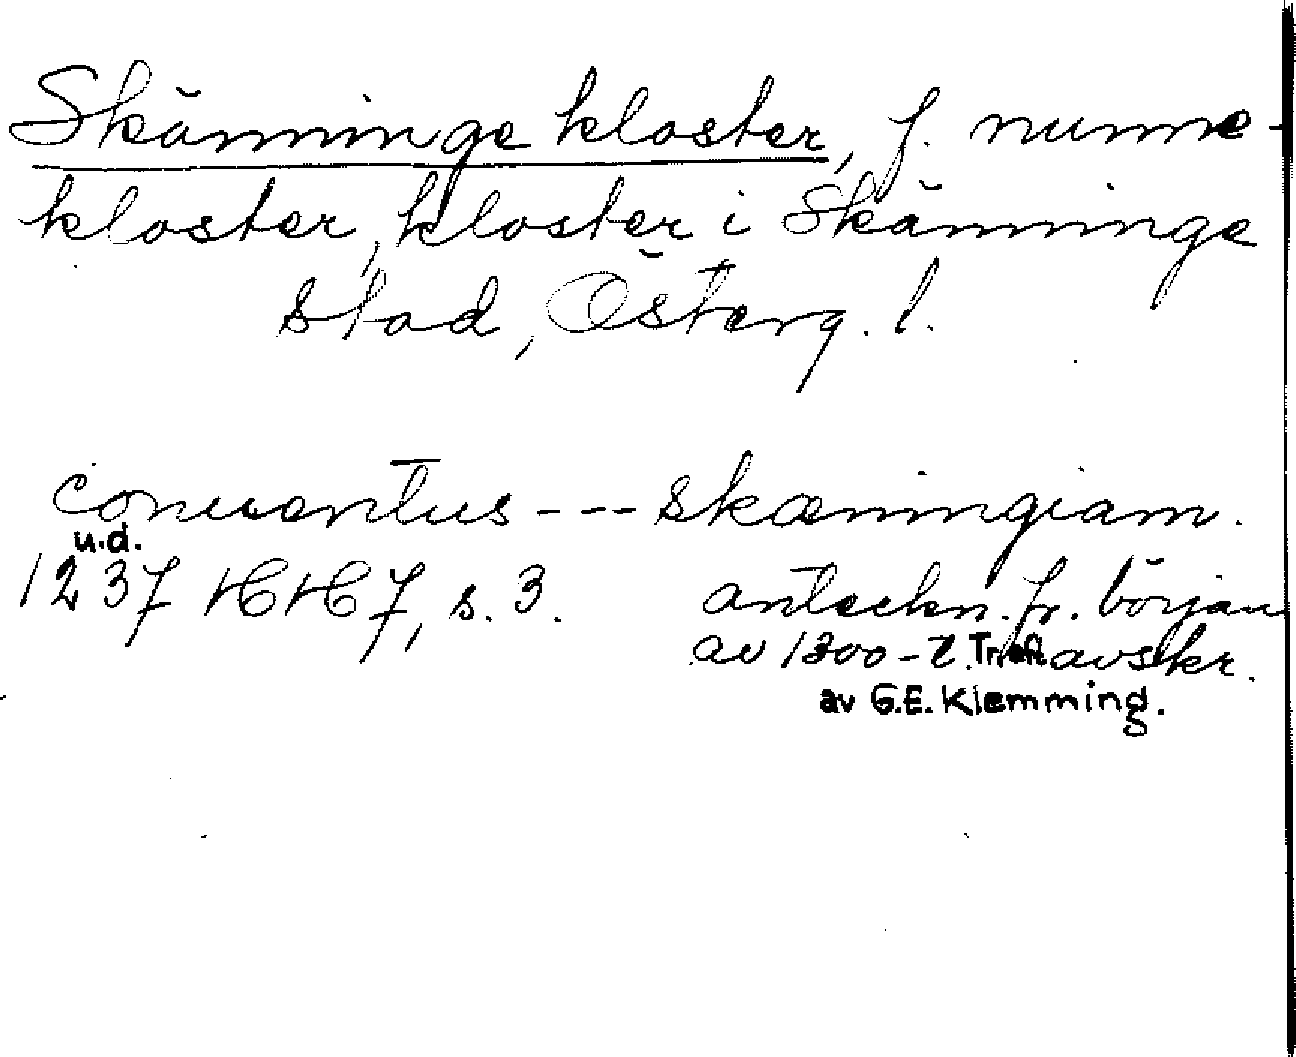 Skänninge kloster, f. nunne-
kloster, kloster i Skänninge
stad, Österg. l.
conuentus --- skæningiam.
u.d.
1237 HH 7, s. 3. anteckn. fr. början
av 1300-t. Tr. eft. avskr.
av G.E. Klemming.